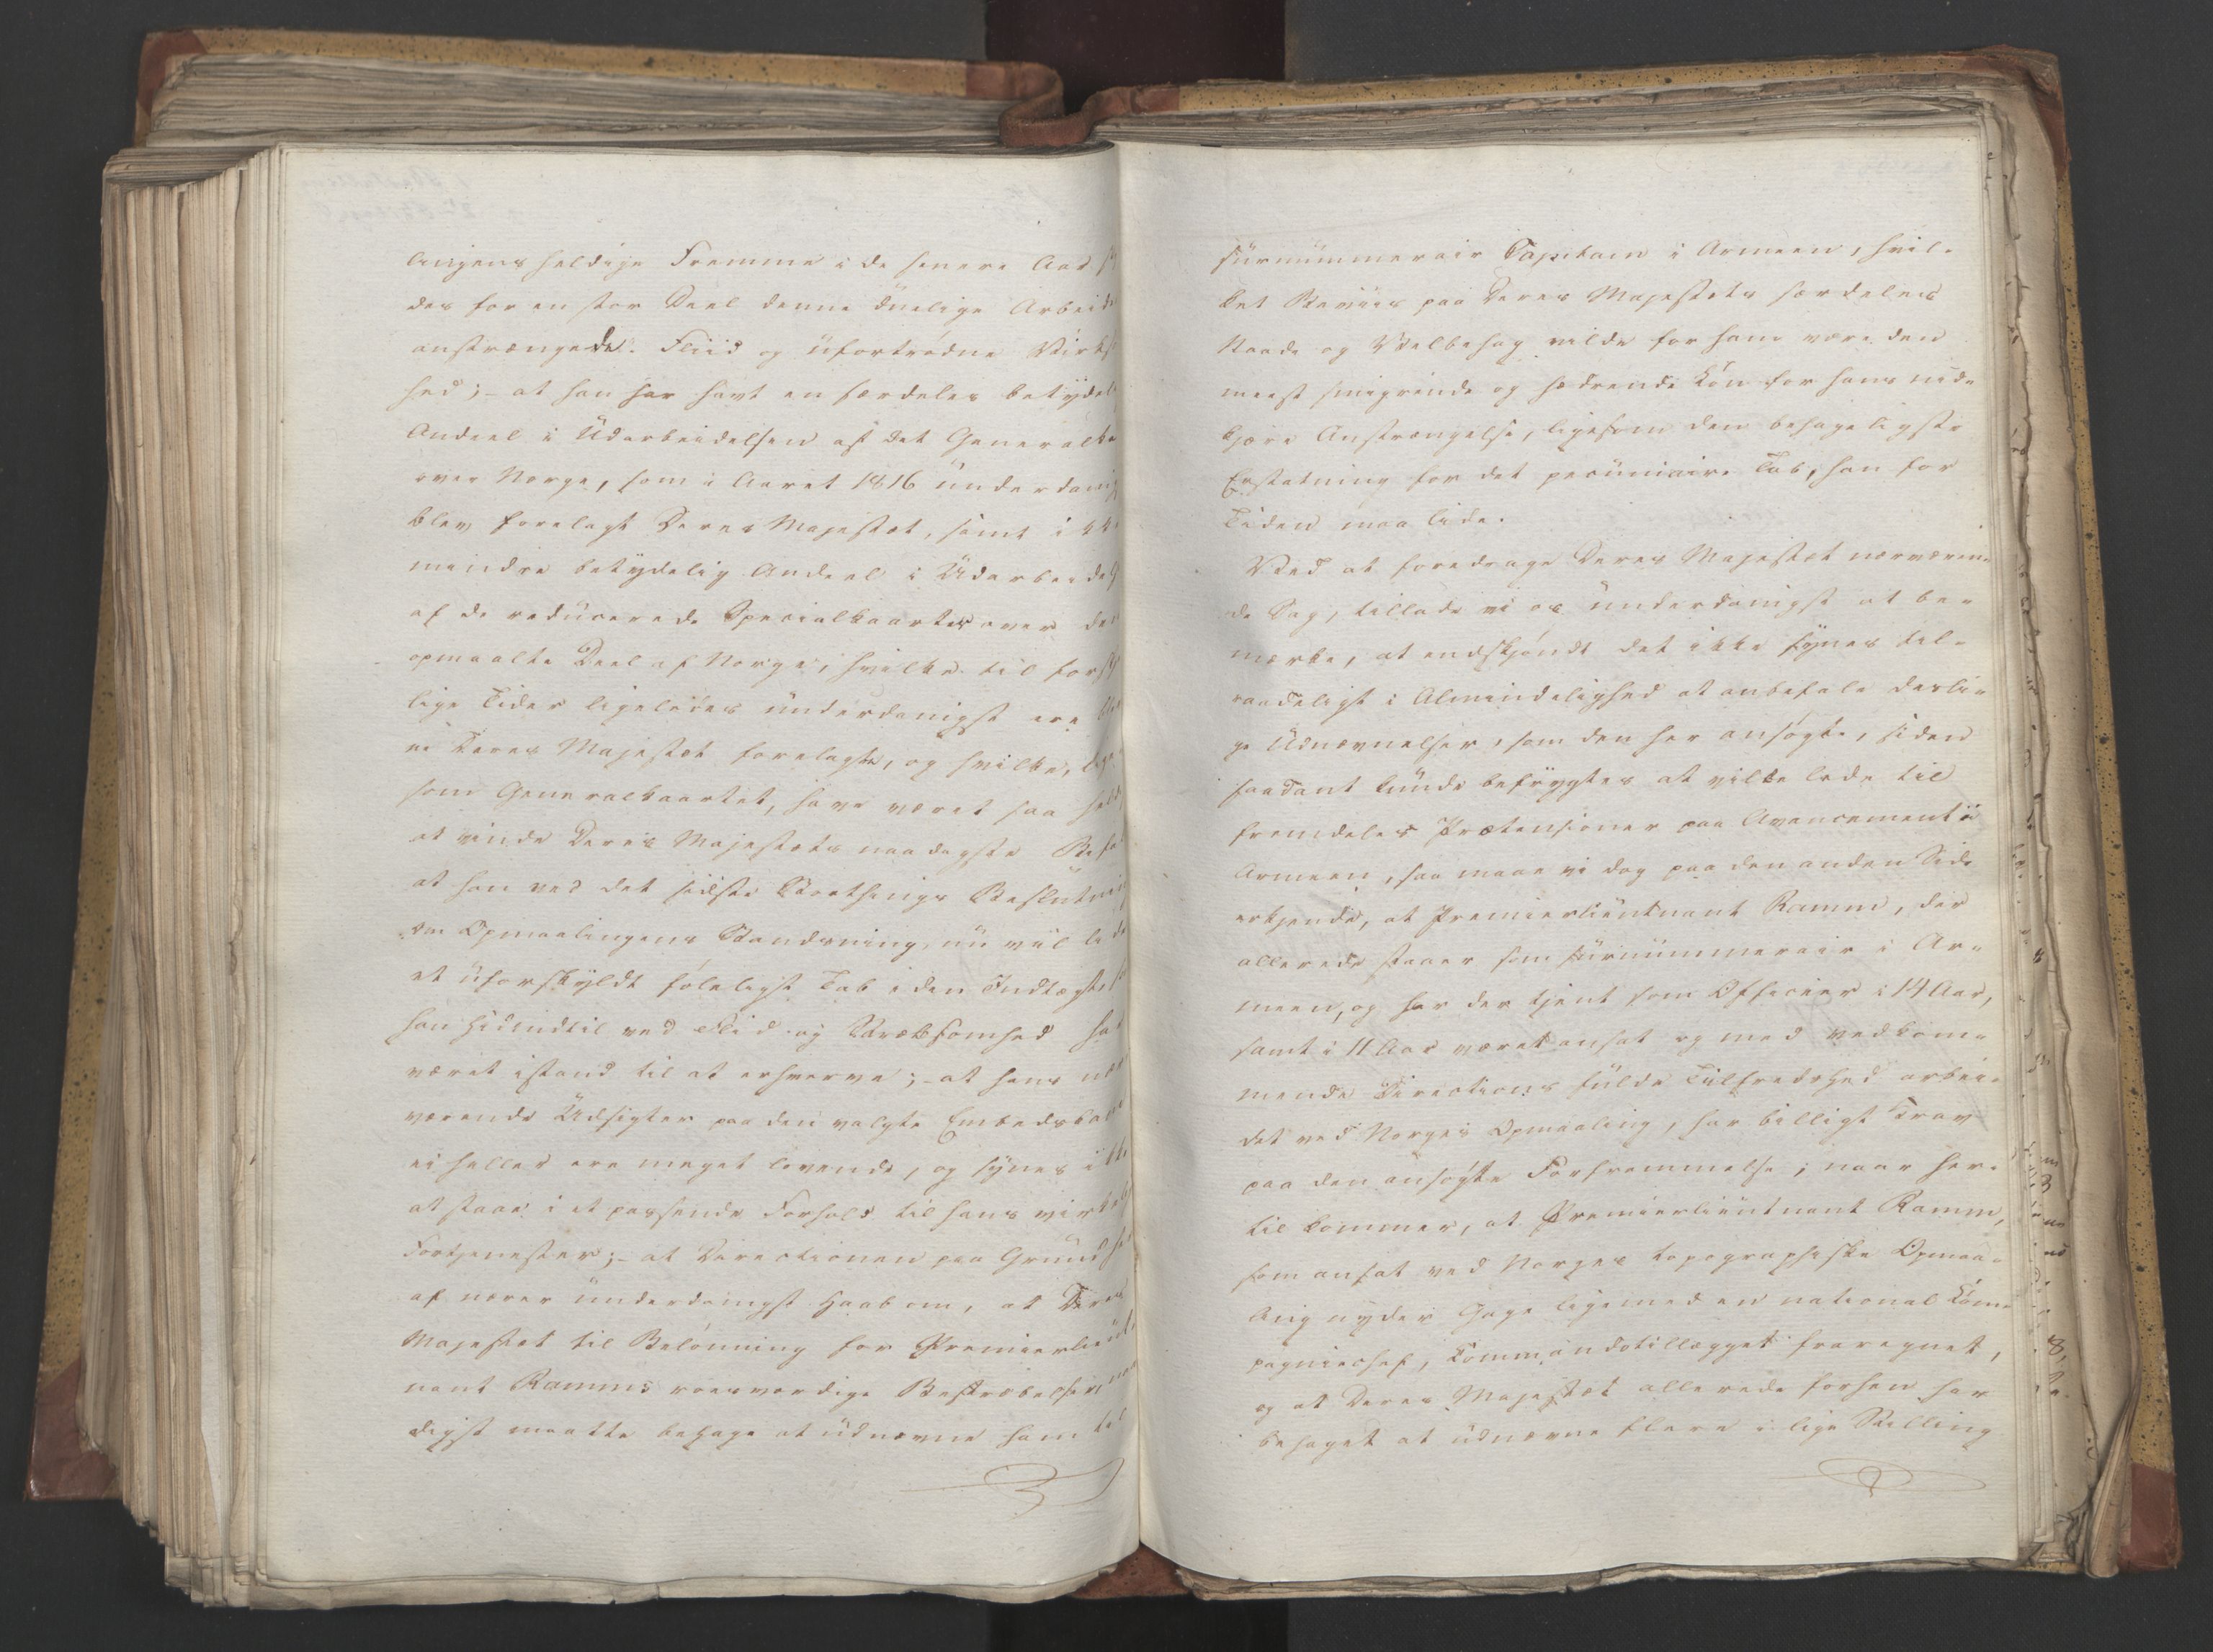 lingens heldige Fremme i de senere Aar
des for en stor Deel denne duelige Arbeid
anstrængede Fliid og ufortrødne Virks
hed; – at han har havt en særdeles betydel
Andeel i Udarbeidelsen af det Generalka
over Norge, som i Aaret 1816 underdanig
blev forelagt Deres Majestæt, samt i
mindre betydelig Andeel i Udarbeidels
af de reducerede Specialkaarter over den
opmaalte Deel af Norge, hvilke til forskj
lige Tider ligeledes underdanigst ere ble
ne Deres Majestæt forelagte, og hvilke, lige
som Generalkaartet, have været saa held
at vinde Deres Majestæts naadigste Bifa
at han ved det sidste Storthings Beslutning
om Opmaalingens Standsning, nu vil lide
et uforskyldt føleligt Tab i den Indtægt,
han hidindtil ved Flid og Stræbsomhed har
været istand til at erhverve; – at hans nær
værende Udsigter paa den valgte Embedsbane
ei heller ere meget lovende, og synes ikke
at staae i et passende Forhold til hans virkel
Fortjenester; – at Directionen paa Grund her
af nærer underdanigst Haab om, at Deres
Majestæt til Belønning for Premierlieut
nant Ramms roesværdige Bestræbelser, naa
digst maatte behage at udnævne ham til
surnummerair Capitain i Armeen, hvil-
ket Beviis paa Deres Majestæts særdeles
Naade og Velbehag vilde for ham være den
meest smigrende og hædrende Løn for hans nid-
kjære Anstrængelse, ligesom den behageligste
Erstatning for det pecuniaire Tab, han for
Tiden maa lide.
Ved at foredrage Deres Majestæt nærværen-
de Sag, tillade vi os underdanigst at be-
mærke, at endskjøndt det ikke synes til-
raadeligt i Almindelighed at anbefale desli-
ge Udnævnelser, som den her ansøgte, siden
saadant kunde befrygtes at ville lede til
fremdeles Prætensioner paa Avancement i
Armeen, saa maae vi dog paa den anden Side
erkjende, at Premierlieutnant Ramm, der
allerede staaer som surnummerair i Ar-
meen, og har der tjent som Officier i 14 Aar,
samt i 11 Aar været ansat og med vedkom-
mende Directions fulde Tilfredshed arbei-
det ved Norges Opmaaling, har billigt Krav
paa den ansøgte Forfremmelse; naar her-
til kommer, at Premierlieutnant Ramm,
som ansat ved Norges topographiske Opmaa-
ling nyder Gage ligemed en national Com-
pagniechef, Commandotillægget fraregnet,
og at Deres Majestæt allerede forhen har
behaget at udnævne flere i lige Stilling